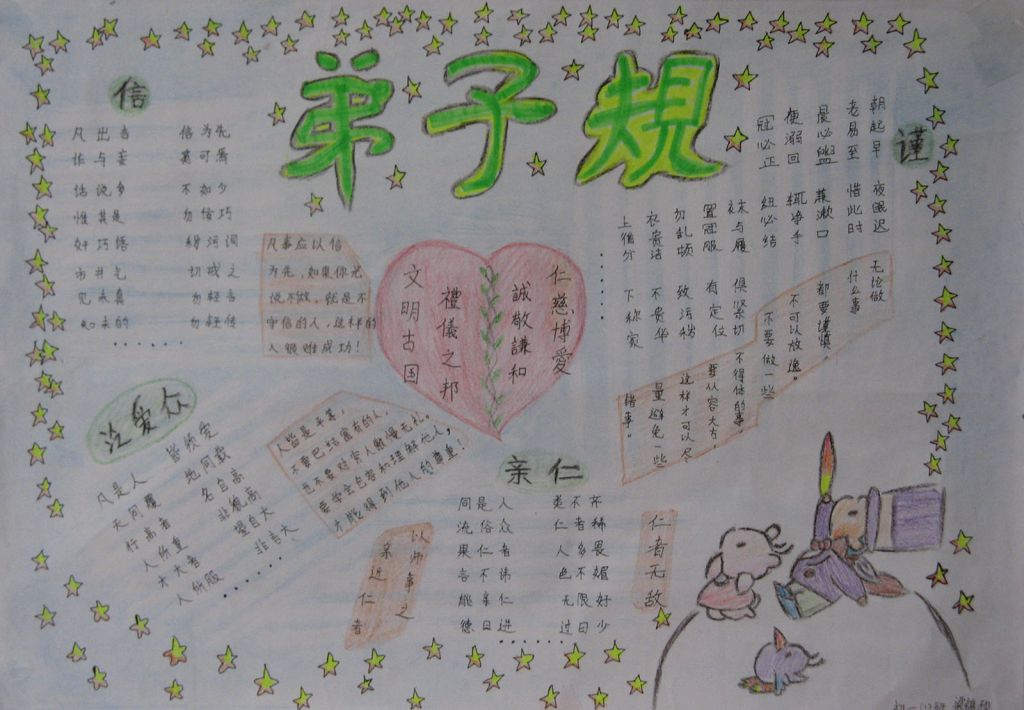 弟子規
信
凡出言 信为先
诈与妄 奚可焉
话说多 不如少
惟其是 勿佞巧
奸巧语 秽污词
市井气 切戒之
见未真 勿轻言
知未的 勿轻传
······
凡事应以信
为先,如果你光
说不做,就是不
守信的人,这样的
人很难成功!
文明古国
禮儀之邦
誠敬謙和
仁慈博愛
谨
朝起早 夜眠迟
老易至 惜此时
晨必盥 兼漱口
便溺回 辄净手
冠必正 纽必结
袜与履 俱紧切
置冠服 有定位
勿乱顿 致污秽
衣贵洁 不贵华
上循分 下称家
······
无论做
什么事
都要謹慎。
不可以放逸。
不要做一些
不得体的事
要从容大方
这样才可以尽
量避免一些
错事。
泛爱众
凡是人 皆须爱
天同覆 地同载
行高者 名自高
人所重 非貌高
才大者 望自大
人所服 非言大
······
人皆是平等,
不要巴结富有的人,
也不要对穷人傲慢无礼。
要学会包容和理解他人,
才能得到他人的尊重!
亲仁
同是人 类不齐
流俗众 仁者稀
果仁者 人多畏
言不讳 色不媚
能亲仁 无限好
德日进 过日少
······
以师事之
亲近仁者
仁者无敌